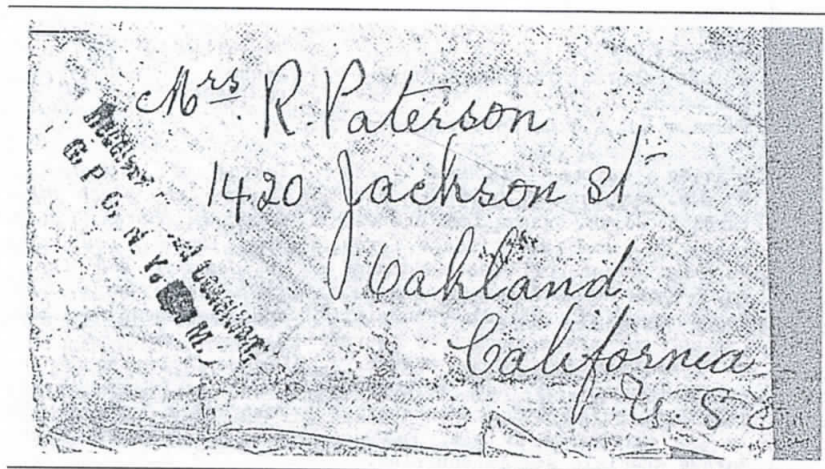 Mrs R. Paterson
1420 Jackson St
Oakland
California
U.S.
G. P. O. N. Y.
M.